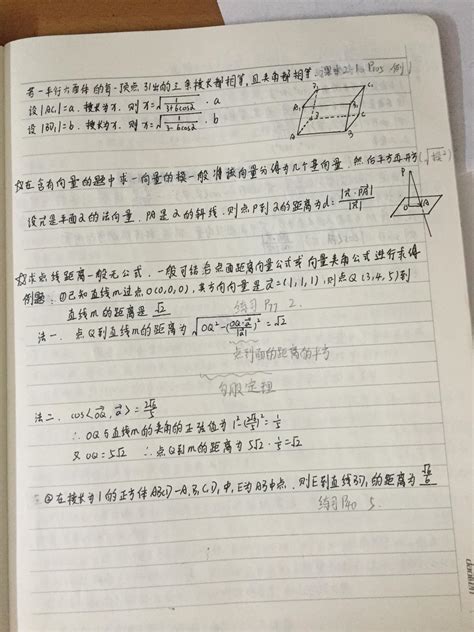 若一平行六面体的自一顶点引出的三条棱长都相等,且夹角都相等 P105 例
设|AC₁|=a.棱长为x.则 x=√(1/(3+6cosα))·a
设|BD₁|=b.棱长为x.则 x=√(1/(3-2cosα))·b
☆在含有向量的题中求一向量的模一般将该向量分解为几个量向量.然后平方再开方(√模²)
设n⃗是平面α的法向量.PA是α的斜线.则点P到α的距离为d=|n⃗·PA⃗|/|n⃗|
☆求点线距离一般无公式.一般可结合点面距离向量公式或向量夹角公式进行求得
例题:①已知直线m过点O(0,0,0),其方向向量是a⃗=(1,1,1),则点Q(3,4,5)到
直线m的距离是√2 练习P99 2.
法一.点Q到直线m的距离为√(OQ²-(OQ⃗·a⃗/|a⃗|)²)=√2
点到面的距离的平方
勾股定理
法二.cos<OQ⃗,a⃗>=2√6/5
∴OQ与直线m的夹角的正弦值为1²-(2√6/5)²=1/5
又OQ=5√2 ∴点Q到m的距离为5√2·1/5=√2
②在棱长为1的正方体ABCD-A₁B₁C₁D₁中,E为AB中点.则E到直线BD₁的距离为√6/6
练习P40 5.